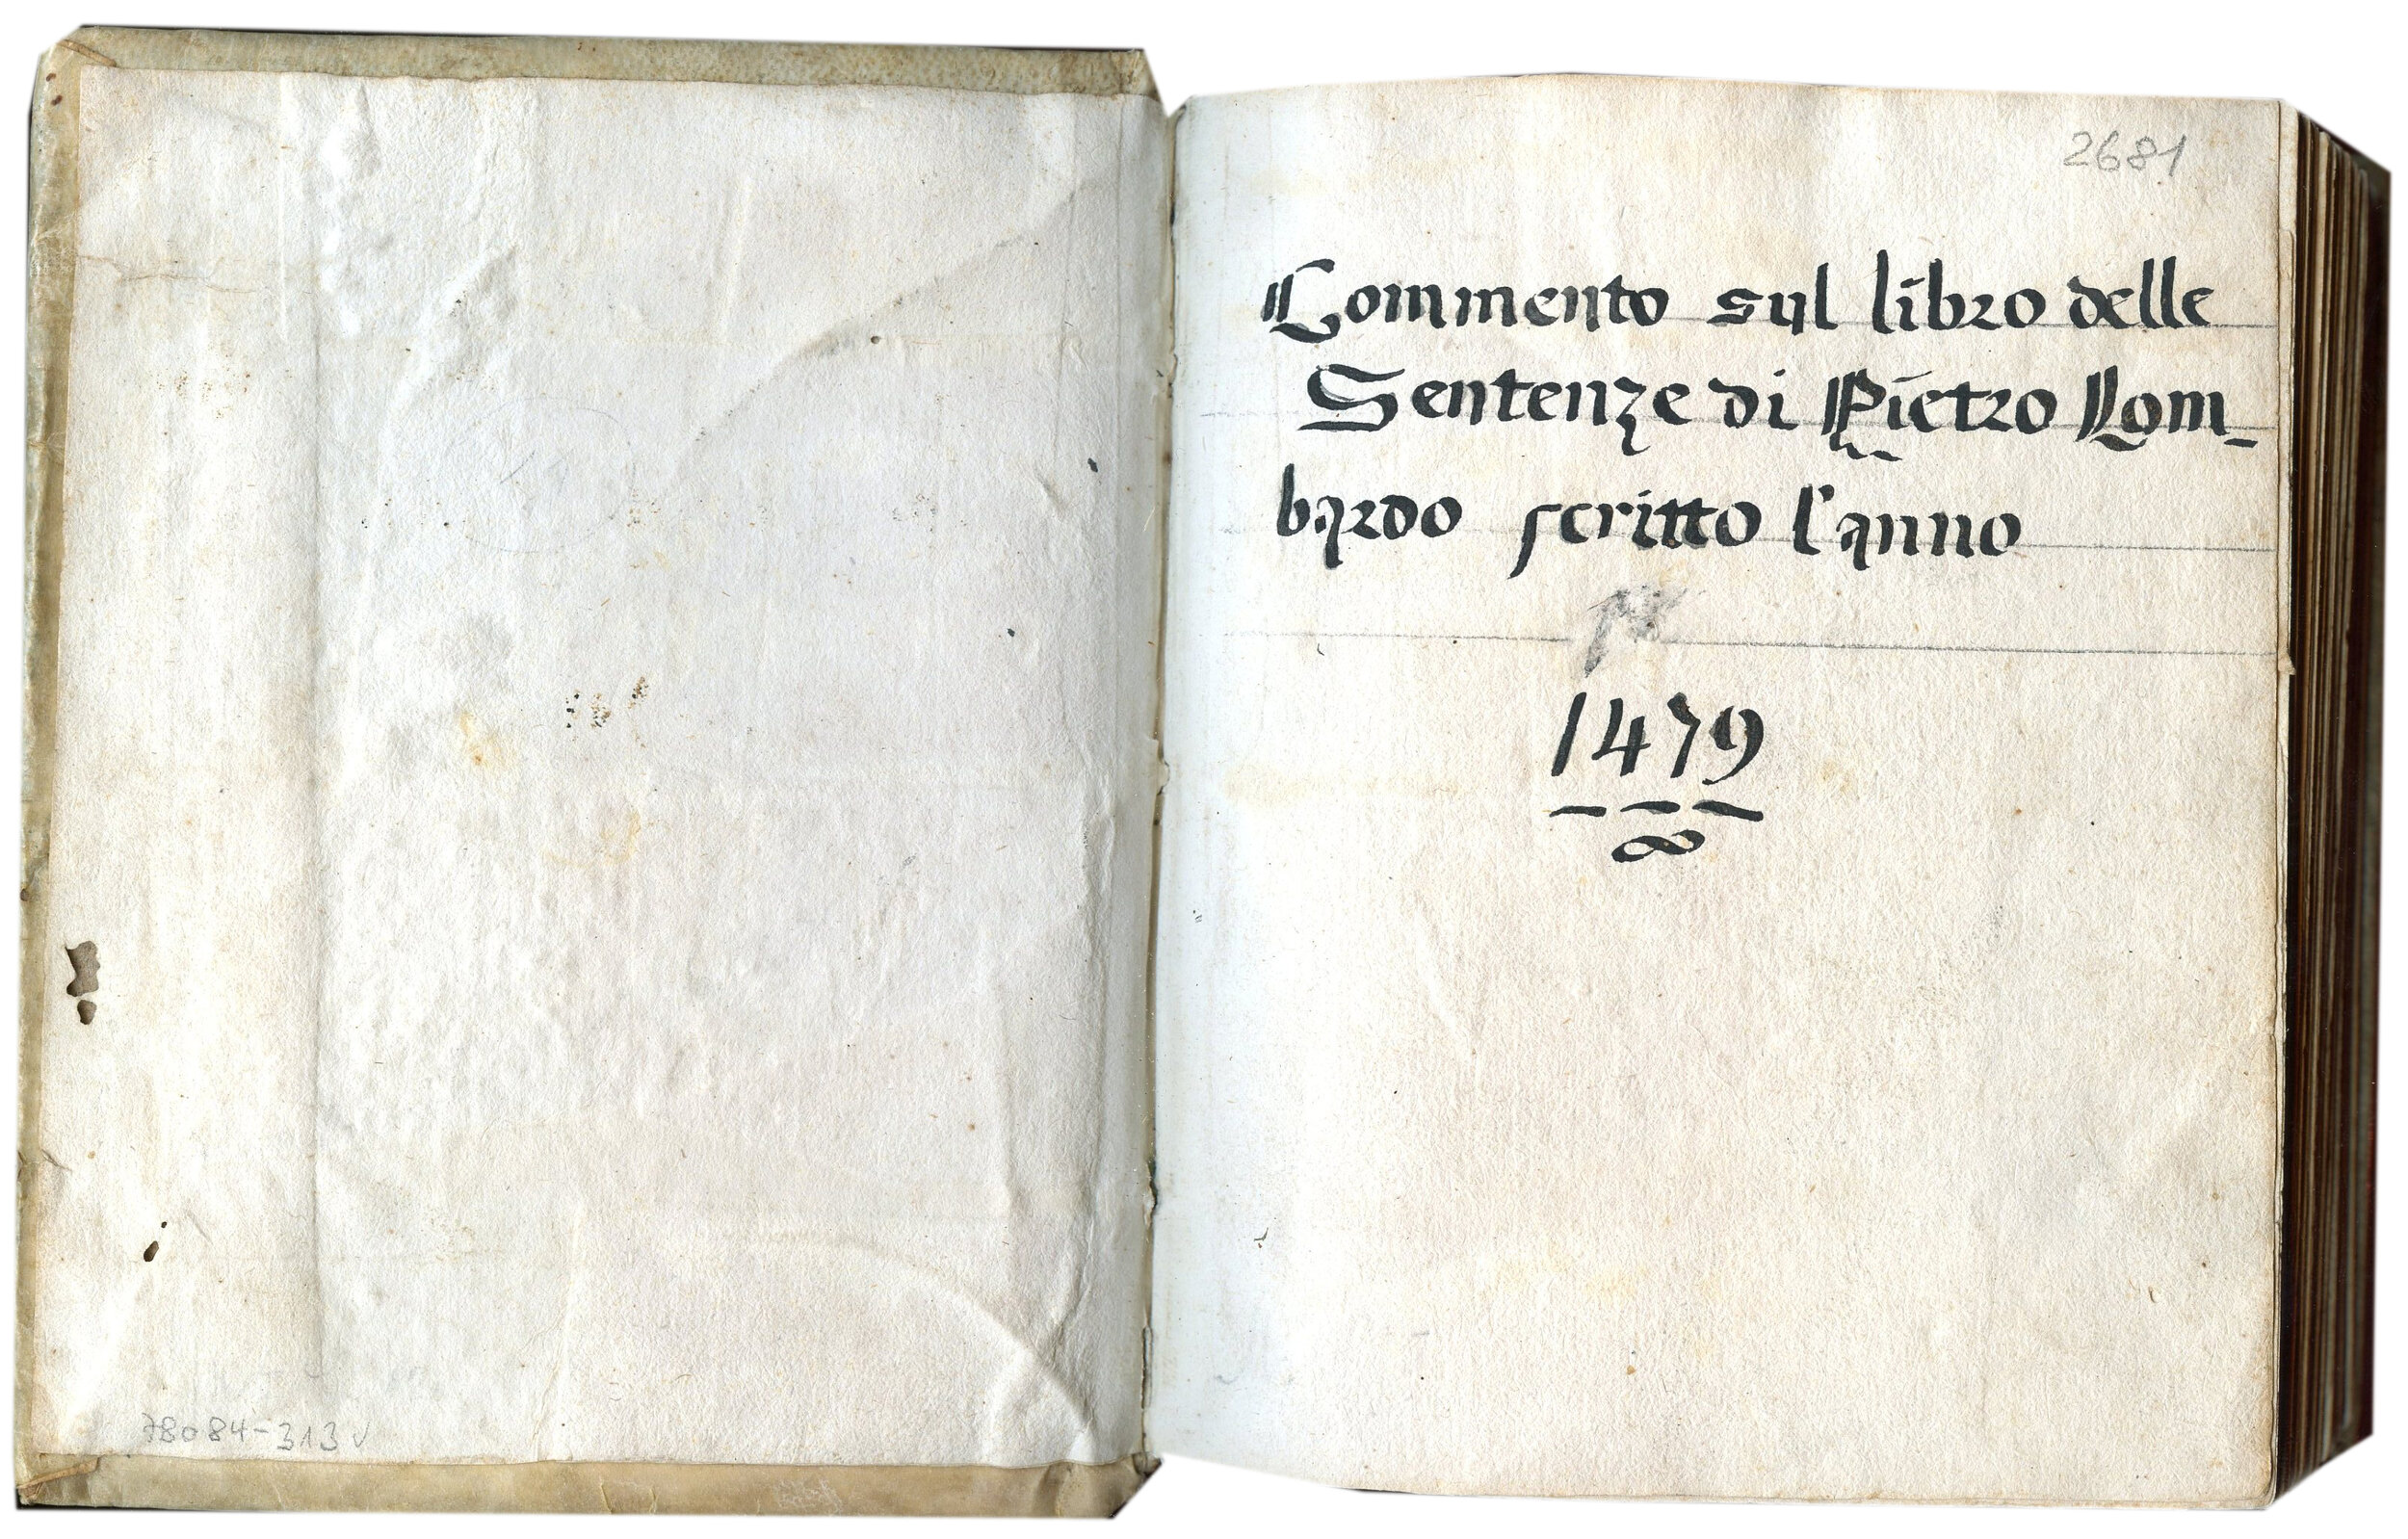 2681
Commento sul libro delle
Sentenze di Pietro Lom-
bardo scritto l'anno
1479
78084-313